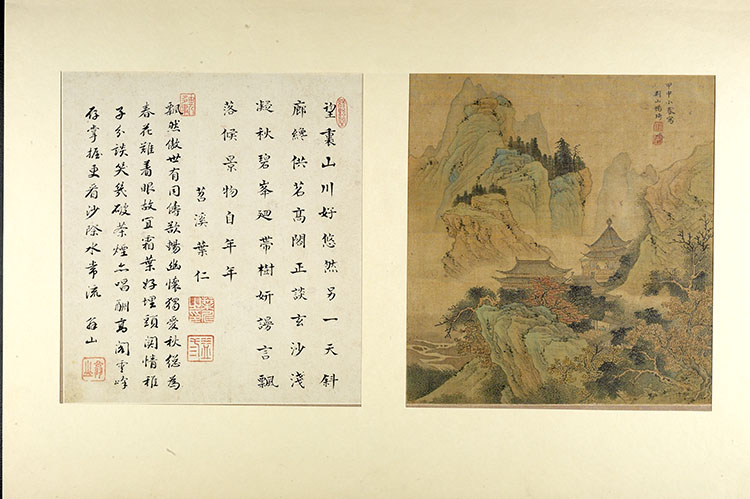 甲申小春寫
望裏山川好悠然另一天斜
廊纔供茗高閣正談玄沙淺
凝秋碧峯迴帶樹妍謾言飄
落候景物自年年
苕溪葉仁
飄然傲世有同儔歡暢幽懷獨愛秋總為
春花難着眼故宜霜葉好埋頭関情稚
子分談笑幾破茶煙亦唱酬高閣重峰
存掌握更看沙際水常流 山